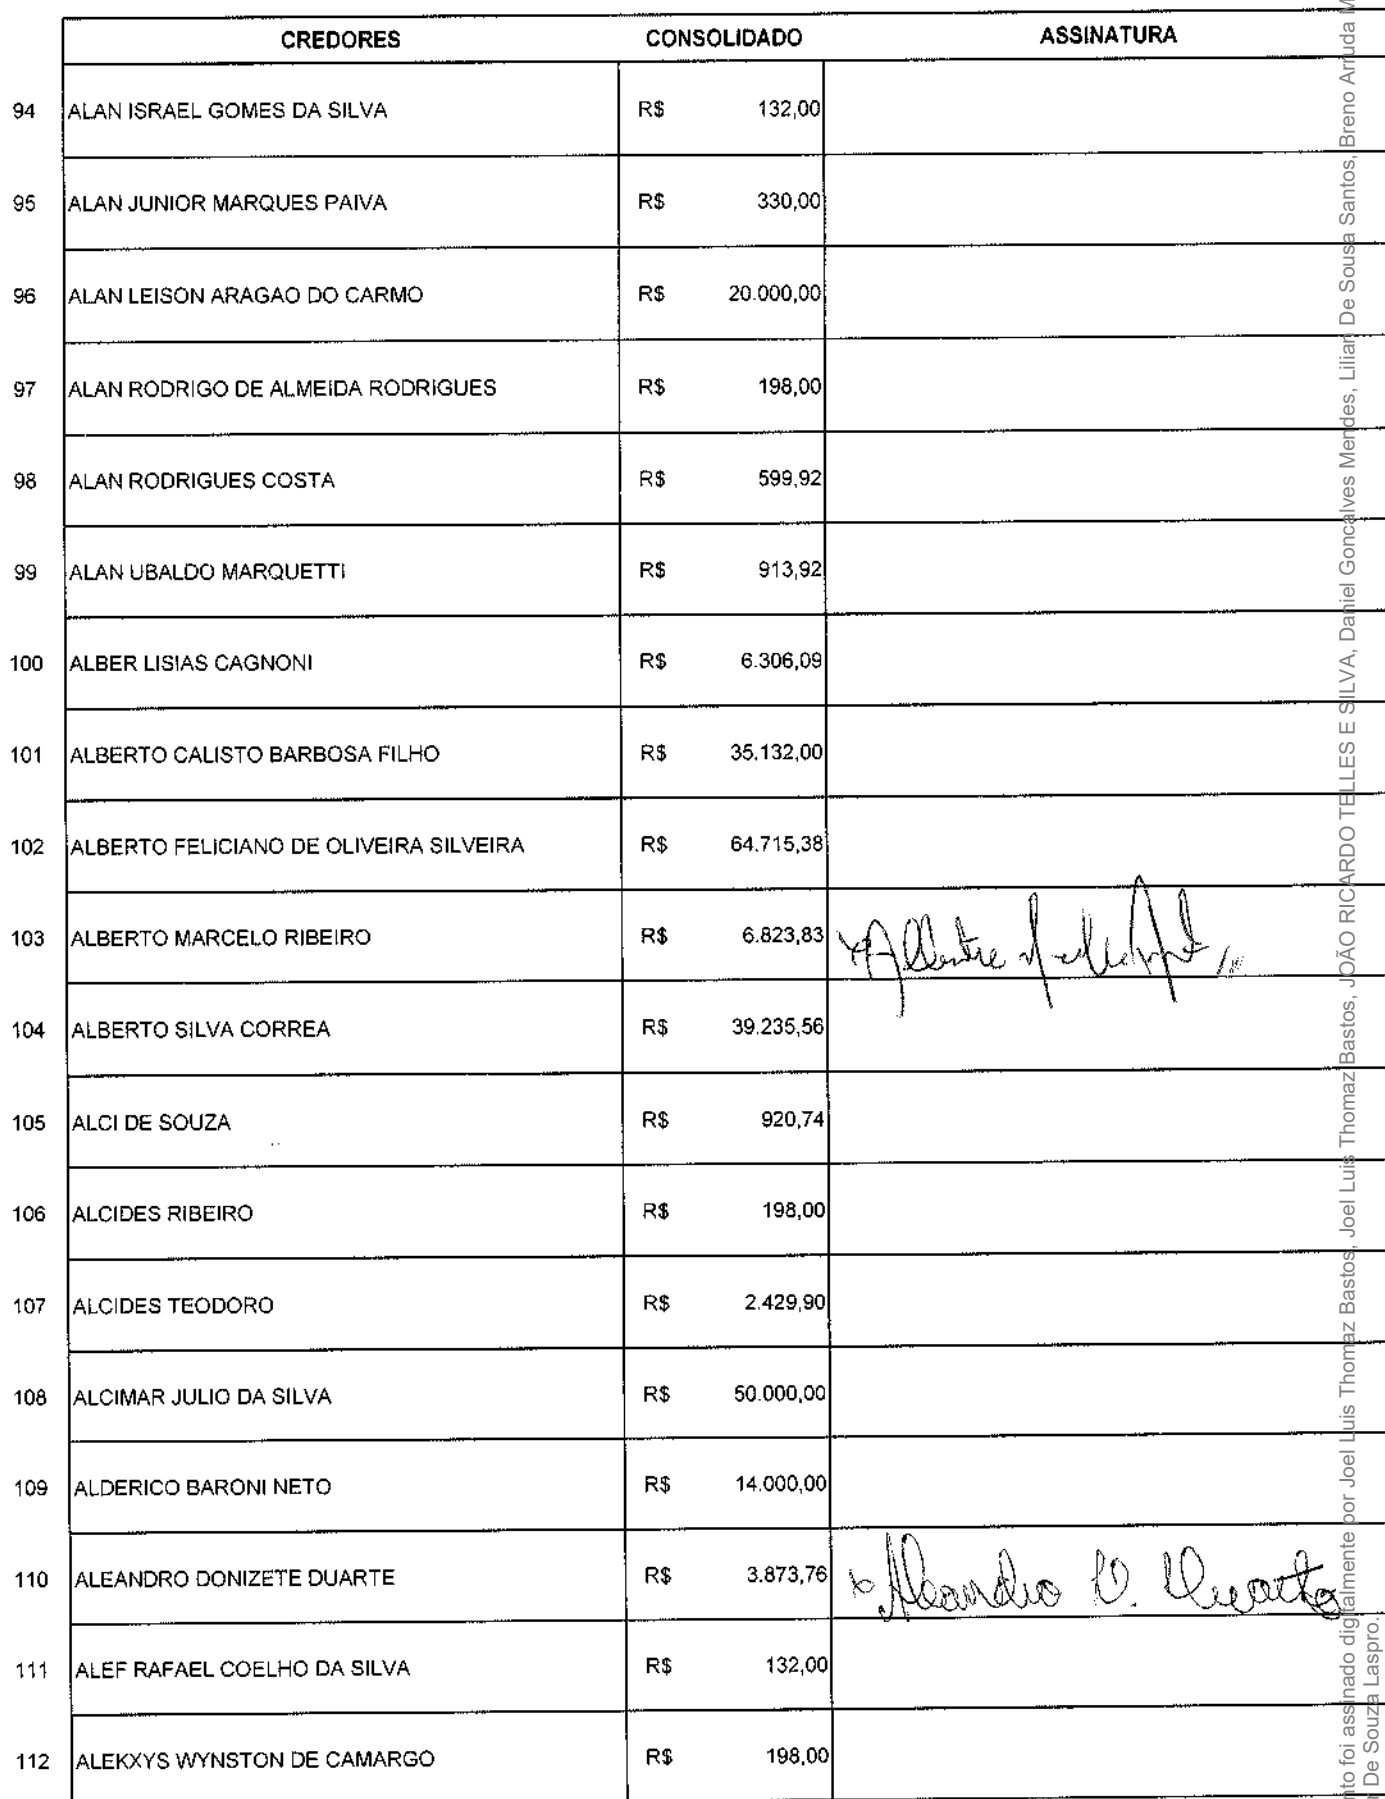 CREDORES CONSOLIDADO ASSINATURA
94 ALAN ISRAEL GOMES DA SILVA R$ 132,00
95 ALAN JUNIOR MARQUES PAIVA R$ 330,00
96 ALAN LEISON ARAGAO DO CARMO R$ 20.000,00
97 ALAN RODRIGO DE ALMEIDA RODRIGUES R$ 198,00
98 ALAN RODRIGUES COSTA R$ 599,92
99 ALAN UBALDO MARQUETTI R$ 913,92
100 ALBER LISIAS CAGNONI R$ 6.306,09
101 ALBERTO CALISTO BARBOSA FILHO R$ 35.132,00
102 ALBERTO FELICIANO DE OLIVEIRA SILVEIRA R$ 64.715,38
103 ALBERTO MARCELO RIBEIRO R$ 6.823,83
104 ALBERTO SILVA CORREA R$ 39.235,56
105 ALCI DE SOUZA R$ 920,74
106 ALCIDES RIBEIRO R$ 198,00
107 ALCIDES TEODORO R$ 2.429,90
108 ALCIMAR JULIO DA SILVA R$ 50.000,00
109 ALDERICO BARONI NETO R$ 14.000,00
110 ALEANDRO DONIZETE DUARTE R$ 3.873,76 Aleandro D. Duarte
111 ALEF RAFAEL COELHO DA SILVA R$ 132,00
112 ALEKXYS WYNSTON DE CAMARGO R$ 198,00
nto foi assinado digitalmente por Joel Luis Thomaz Bastos, Joel Luis Thomaz Bastos, JOÃO RICARDO TELLES E SILVA, Daniel Goncalves Mendes, Lilian De Sousa Santos, Breno Arruda M
De Souza Laspro.